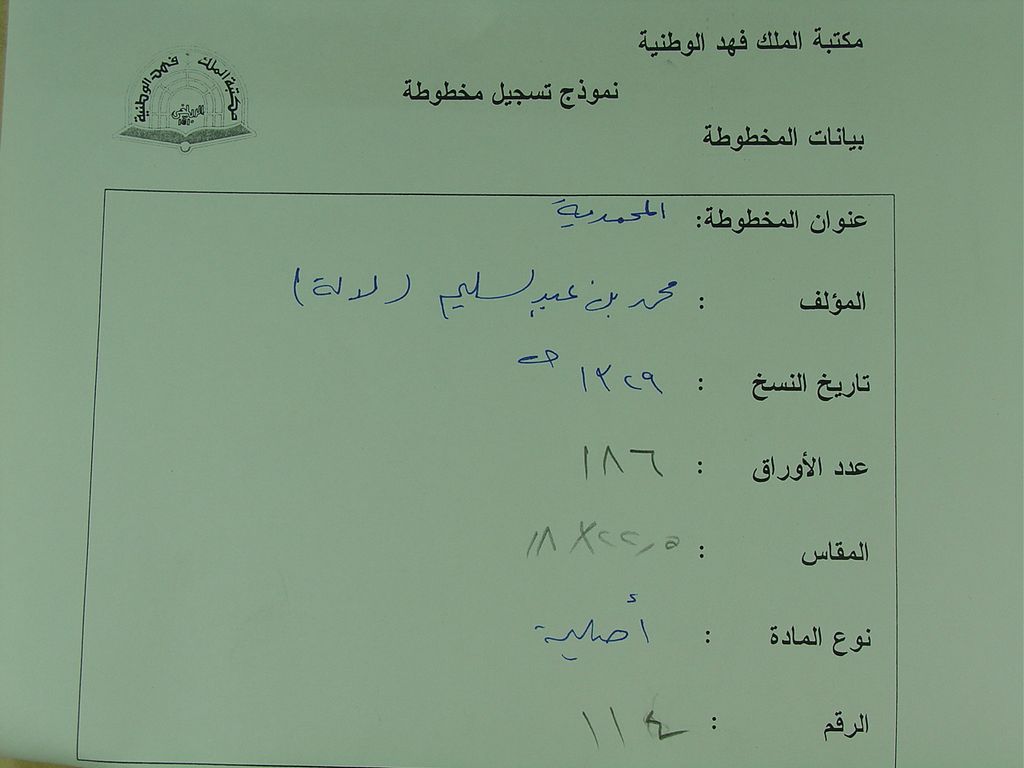 مكتبة الملك فهد الوطنية
نموذج تسجيل مخطوطة
مكتبة الملك فهد الوطنية
الرياض
بيانات المخطوطة
عنوان المخطوطة: المحمدية
المؤلف : محمد بن عبدالسليم (لالة)
تاريخ النسخ : ١٣٢٩ هـ
عدد الأوراق : ١٨٦
المقاس : ١٨ X ٢٢,٥
نوع المادة : أصلية
الرقم : ١١٤